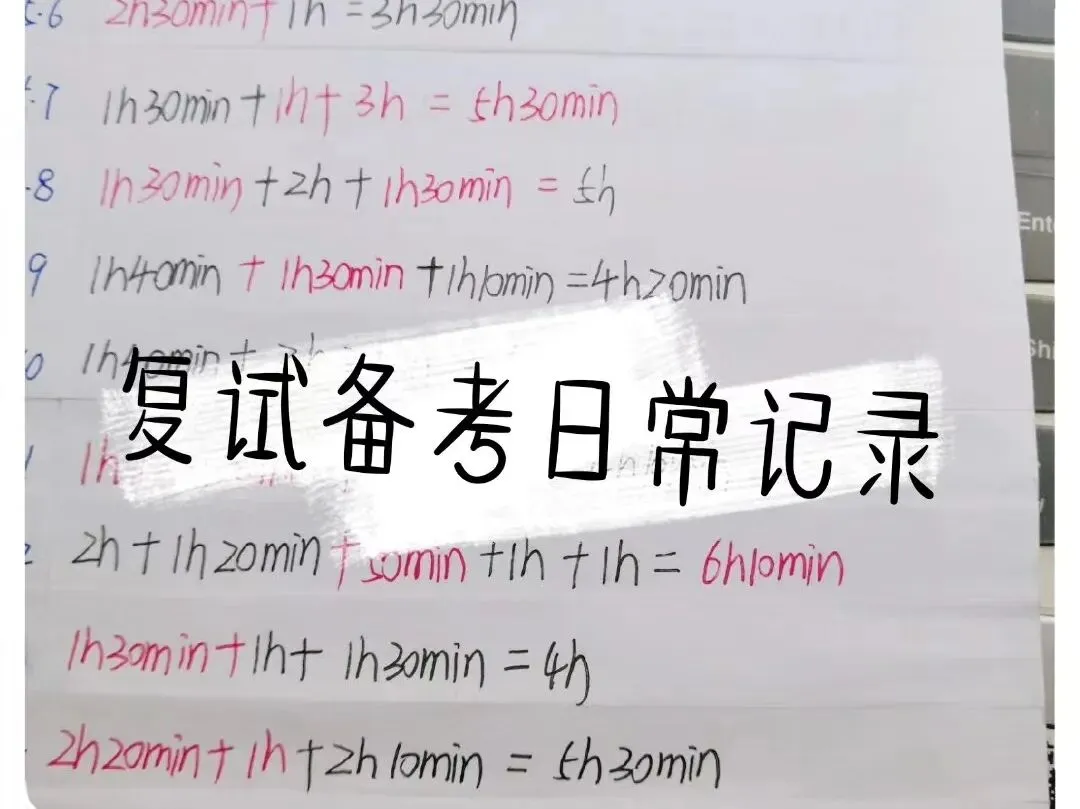 5.6 2h30min+1h=3h30min
.7 1h30min+1h+3h=5h30min
.8 1h30min+2h+1h30min=5h
9 1h40min+1h30min+1h10min=4h20min
0 1h40min+
复试备考日常记录
1h
2 2h+1h20min+50min+1h+1h=6h10min
1h30min+1h+1h30min=4h
2h20min+1h+2h10min=5h30min
Ent
Shi